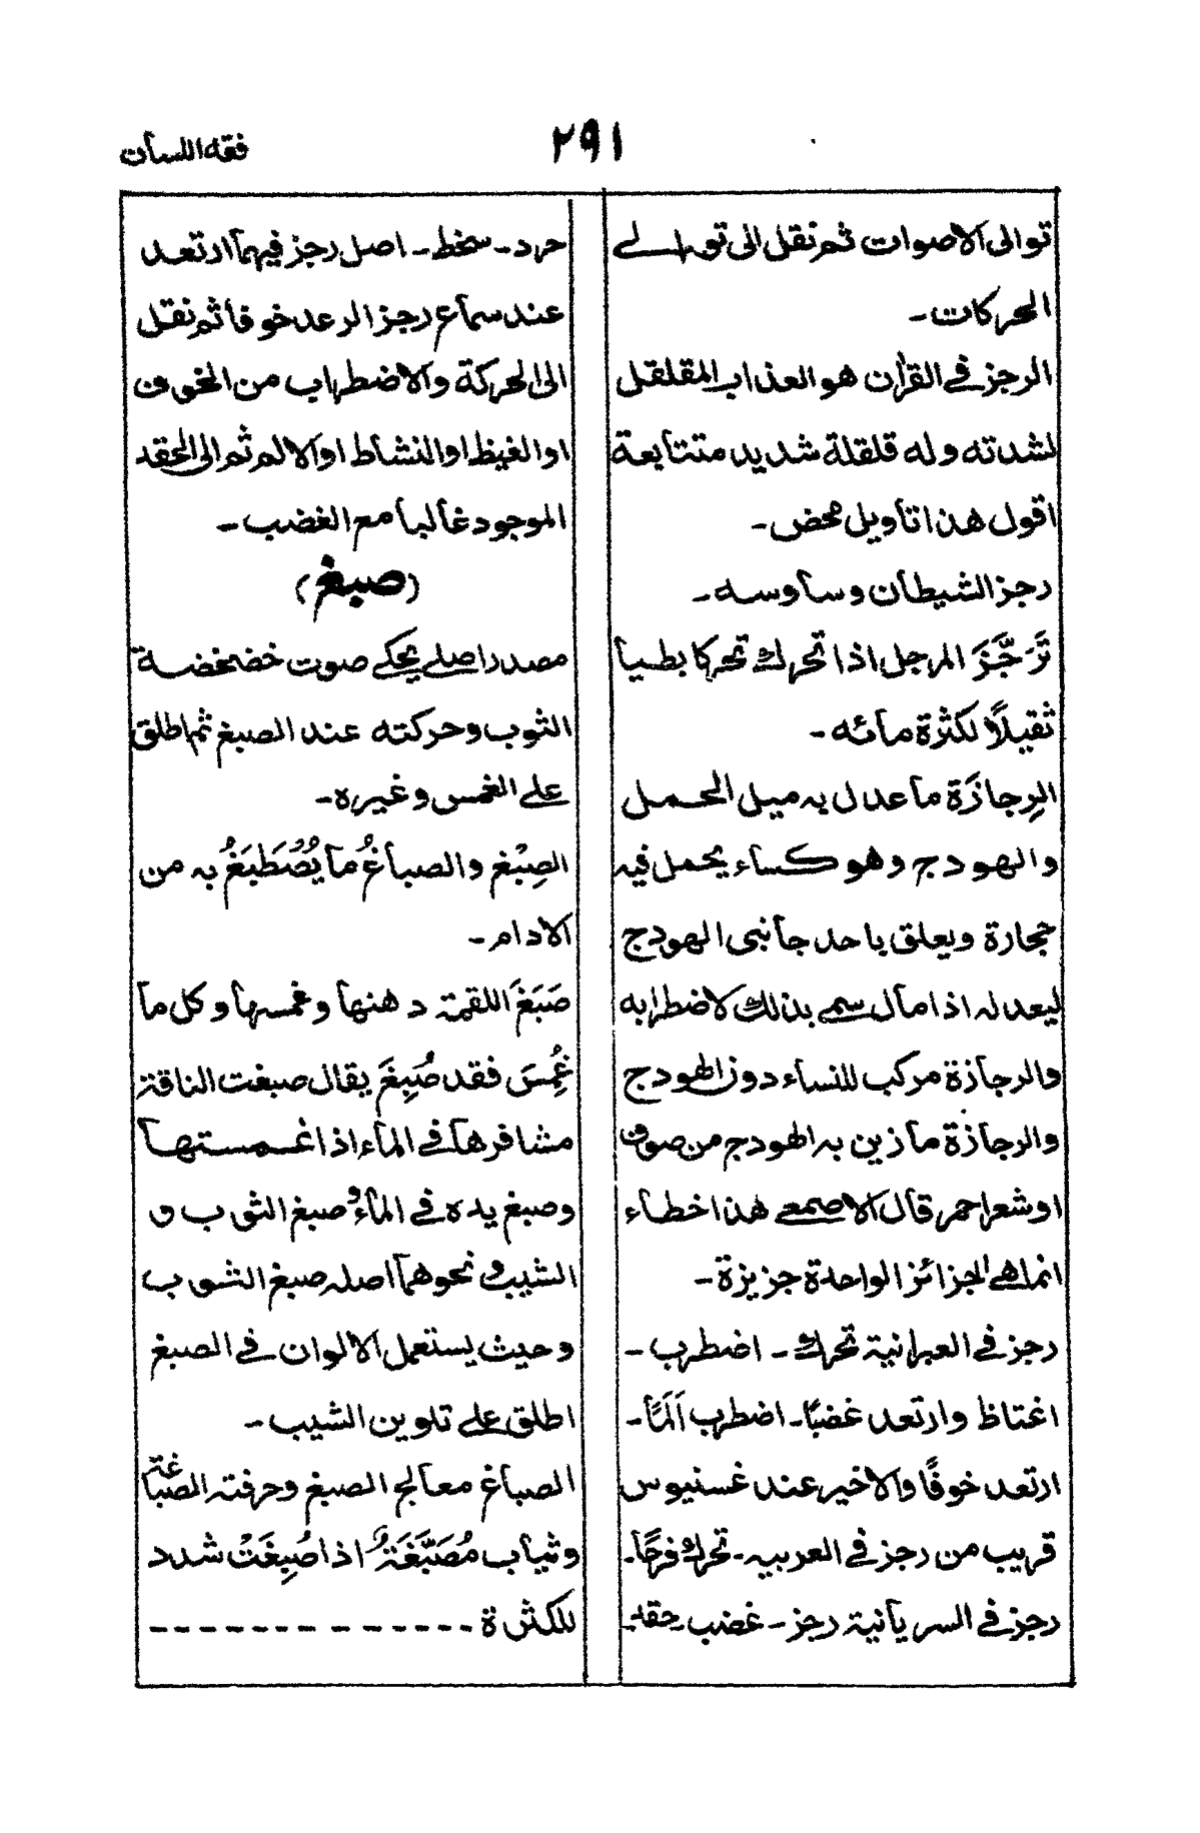 ٢٩١
فقه اللسان
توالى الاصوات ثم نقل الى توالے
الحركات-
الرجز فے القرأن هو العذاب المقلقل
لشدته وله قلقلة شديد متتابعة
اقول هذا تأويل محض-
رجز الشيطان وساوسه-
تَرَجَّزَ الرجل اذا تحرك تحركا بطيأ
ثقيلاً لكثرة مائه-
الرِجازَة ما عدل به ميل الحمل
والهودج وهو كساء يحمل فيه
حجارة ويعلق باحد جانبى الهودج
ليعدله اذا مال سمے بذلك لاضطرابه
والرجازة مركب للنساء دون الهودج
والرجازة ما زين به الهودج من صوف
او شعر احمر قال الاصمعے هذا خطاء
انما هے الجزائز الواحدة جزيزة-
رجز فے العبرانية تحرك- اضطرب-
اغتاظ وارتعد غضبًا- اضطرب اَلَمًا-
ارتعد خوفًا والاخير عند غسنيوس
قريب من رجز فے العربيه- تحرك فرحًا-
رجز فے السريانية رجز- غضب- حقد-
حرد- سخط- اصل رجز فيهما ارتعد
عند سماع رجز الرعد خوفا ثم نقل
الى الحركة والاضطراب من الخوف
او الغيظ او النشاط او الالم ثم الى الحقد
الموجود غالبا مع الغضب-
(صبغ)
مصدر اصلے يحكے صوت خضخضة
الثوب وحركته عند الصبغ ثم اطلق
علے الغمس وغيره-
الصِبْغ والصباغُ ما يُصْطَبَغُ به من
الادام-
صَبَغَ اللقمة دهنها وغمسها وكل ما
غُمِسَ فقد صُبِغَ يقال صبغت الناقة
مشافرها فے الماء اذا غمستها
وصبغ يده فے الماء و صبغ الثوب و
الشيب و نحوهما اصله صبغ الثوب
وحيث يستعمل الالوان فے الصبغ
اطلق علے تلوين الشيب-
الصباغ معالج الصبغ وحرفته الصِّباغة
وثياب مُصَبَّغَةٌ اذا صُبِغَتْ شدد
للكثرة - - - - - - - - - - - -